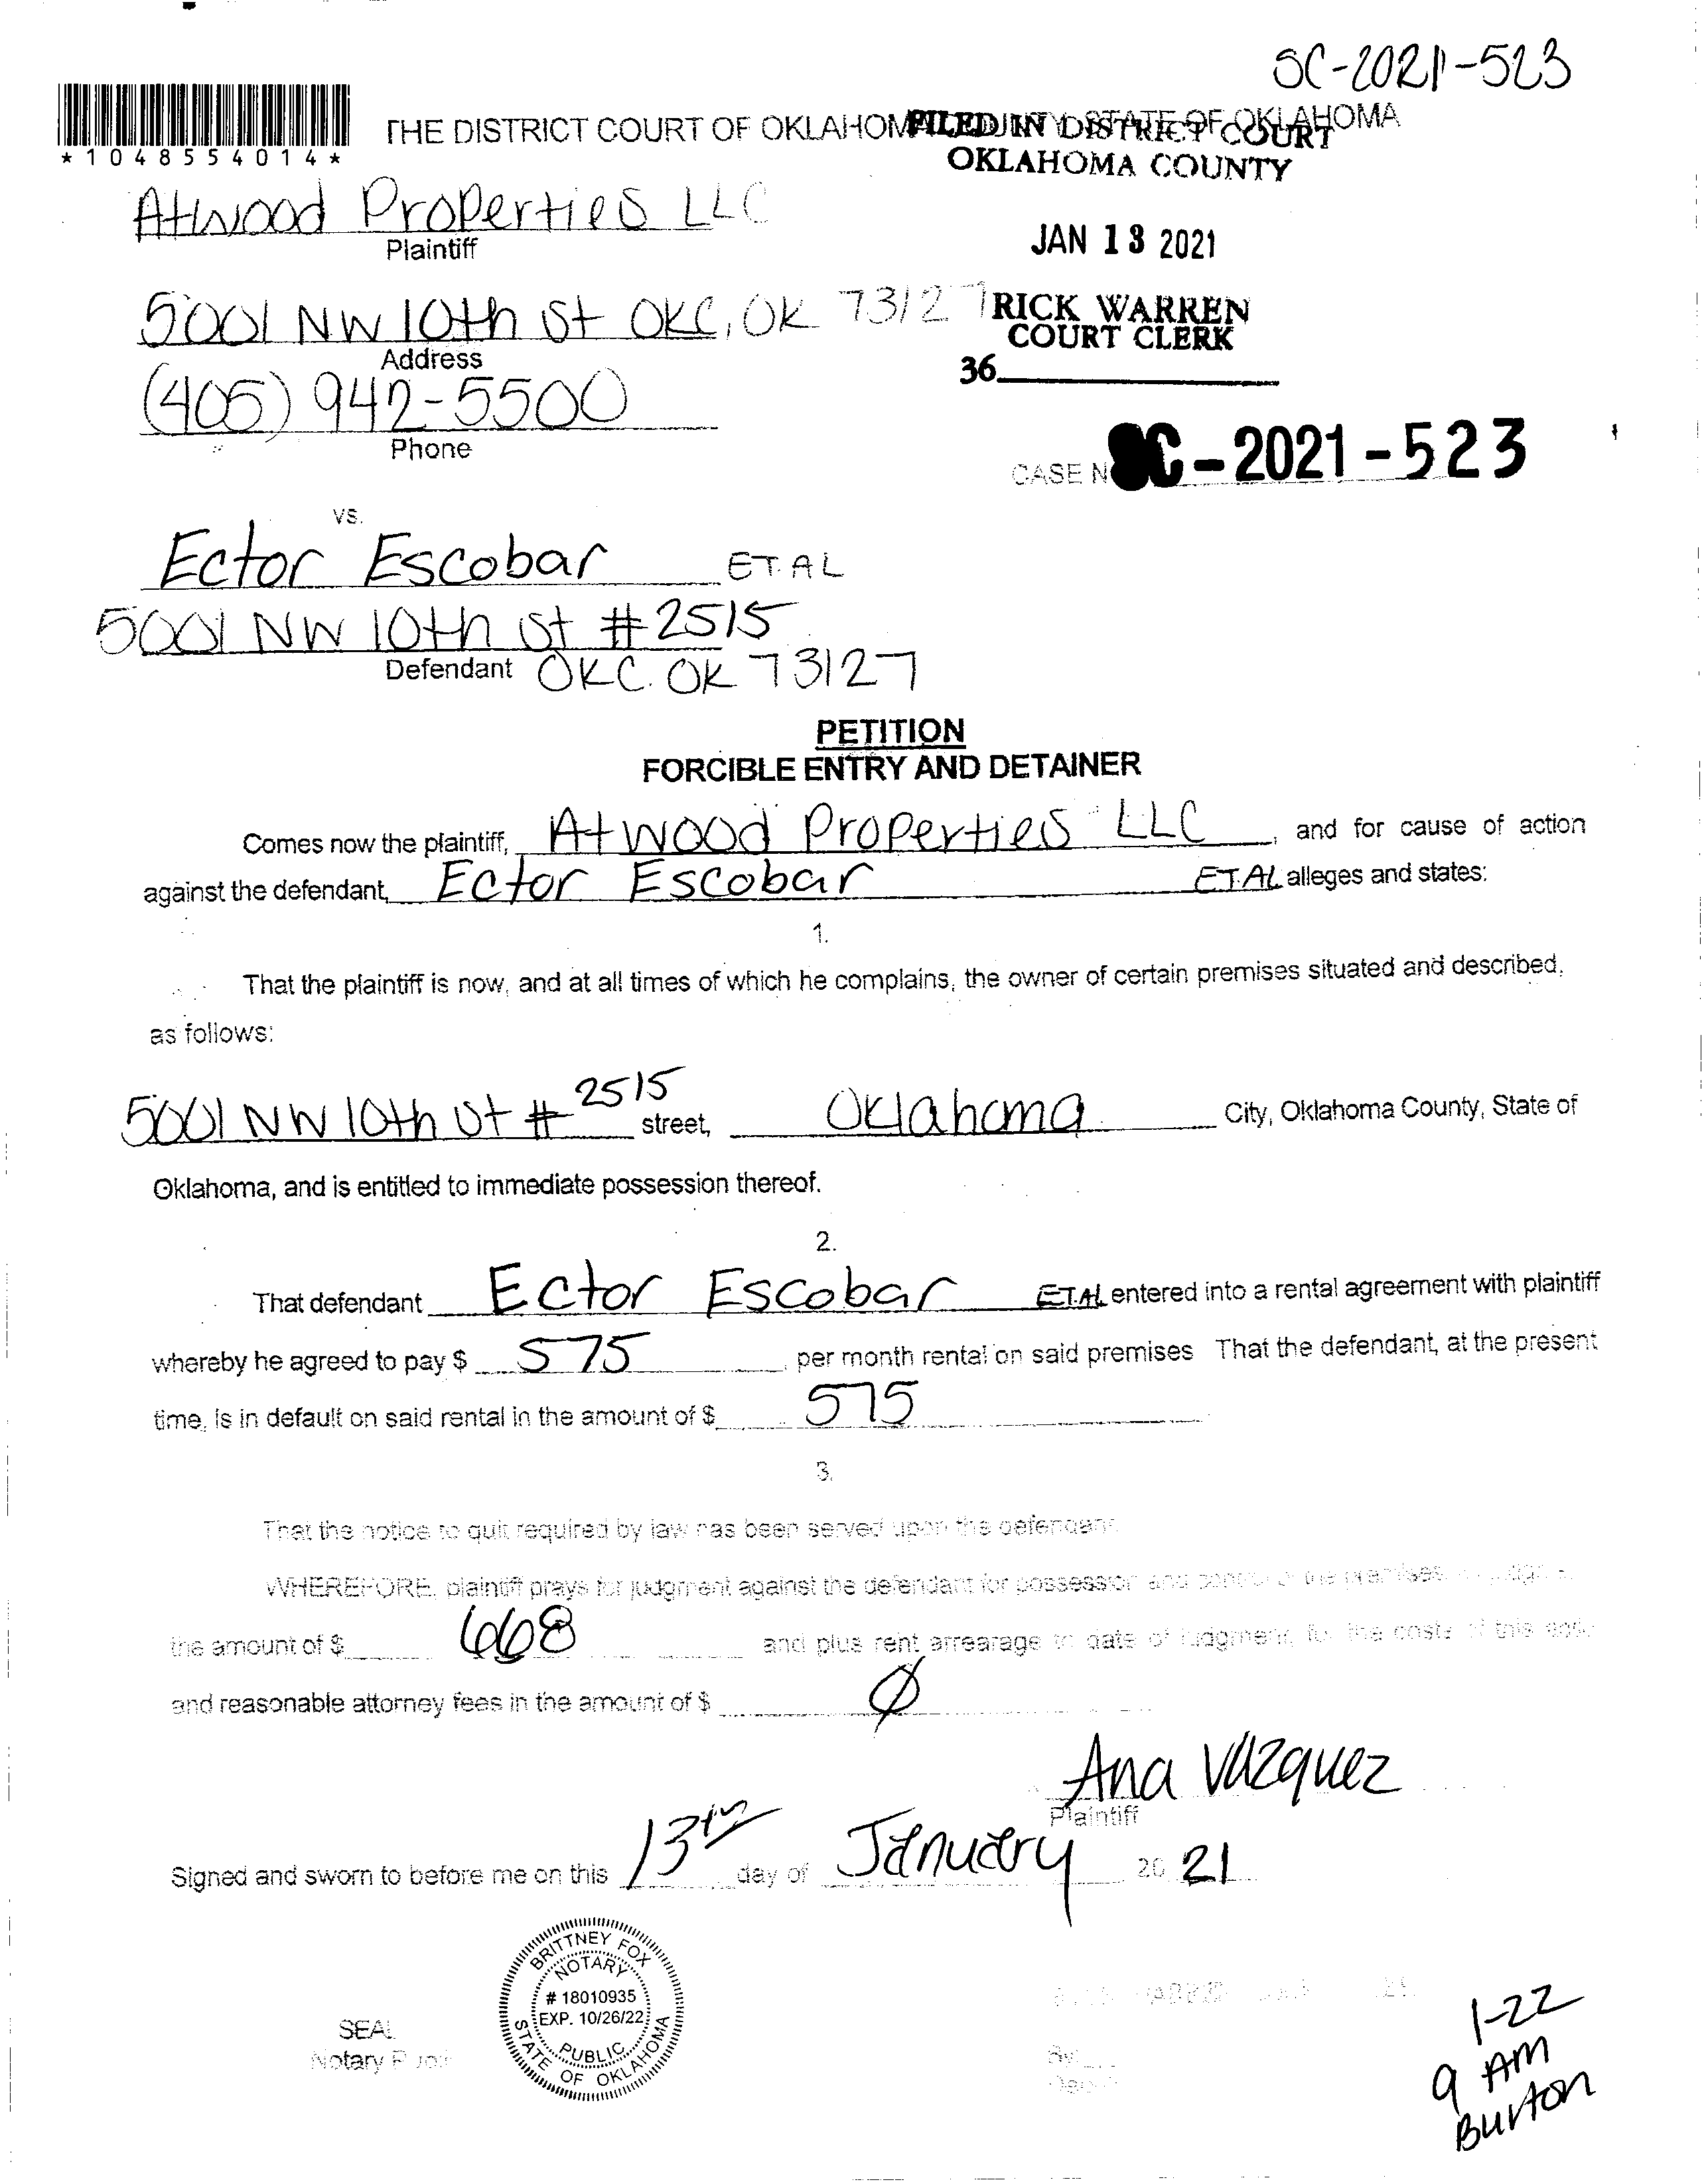 SC-2021-523
*1048554014*
THE DISTRICT COURT OF OKLAHOMA COUNTY, STATE OF OKLAHOMA
FILED IN DISTRICT COURT
OKLAHOMA COUNTY
Atwood Properties LLC
Plaintiff
JAN 13 2021
5001 NW 10th St OKC, OK 73127
RICK WARREN
COURT CLERK
Address
36
(405) 942-5500
Phone
CASE N SC-2021-523
vs.
Ector Escobar ET. AL
5001 NW 10th St #2515
Defendant OKC. OK 73127
PETITION
FORCIBLE ENTRY AND DETAINER
Comes now the plaintiff, Atwood Properties LLC, and for cause of action
against the defendant, Ector Escobar ET.AL alleges and states:
1.
That the plaintiff is now, and at all times of which he complains, the owner of certain premises situated and described,
as follows:
5001 NW 10th St # 2515 street, Oklahoma City, Oklahoma County, State of
Oklahoma, and is entitled to immediate possession thereof.
2.
That defendant Ector Escobar ET.AL entered into a rental agreement with plaintiff
whereby he agreed to pay $ 575 per month rental on said premises That the defendant, at the present
time, is in default on said rental in the amount of $ 575
3.
That the notice to quit required by law has been served upon the defendant.
WHEREFORE, plaintiff prays for judgment against the defendant for possession and control of the premises
the amount of $ 668 and plus rent arrearage to date of judgment, for the costs of this
and reasonable attorney fees in the amount of $ Ø
Ana Vazquez
Plaintiff
Signed and sworn to before me on this 13th day of January 20 21
BRITTNEY FOX
NOTARY
# 18010935
EXP. 10/26/22
PUBLIC
STATE OF OKLAHOMA
SEAL
Notary Public
By:
1-22
9 AM
Burton